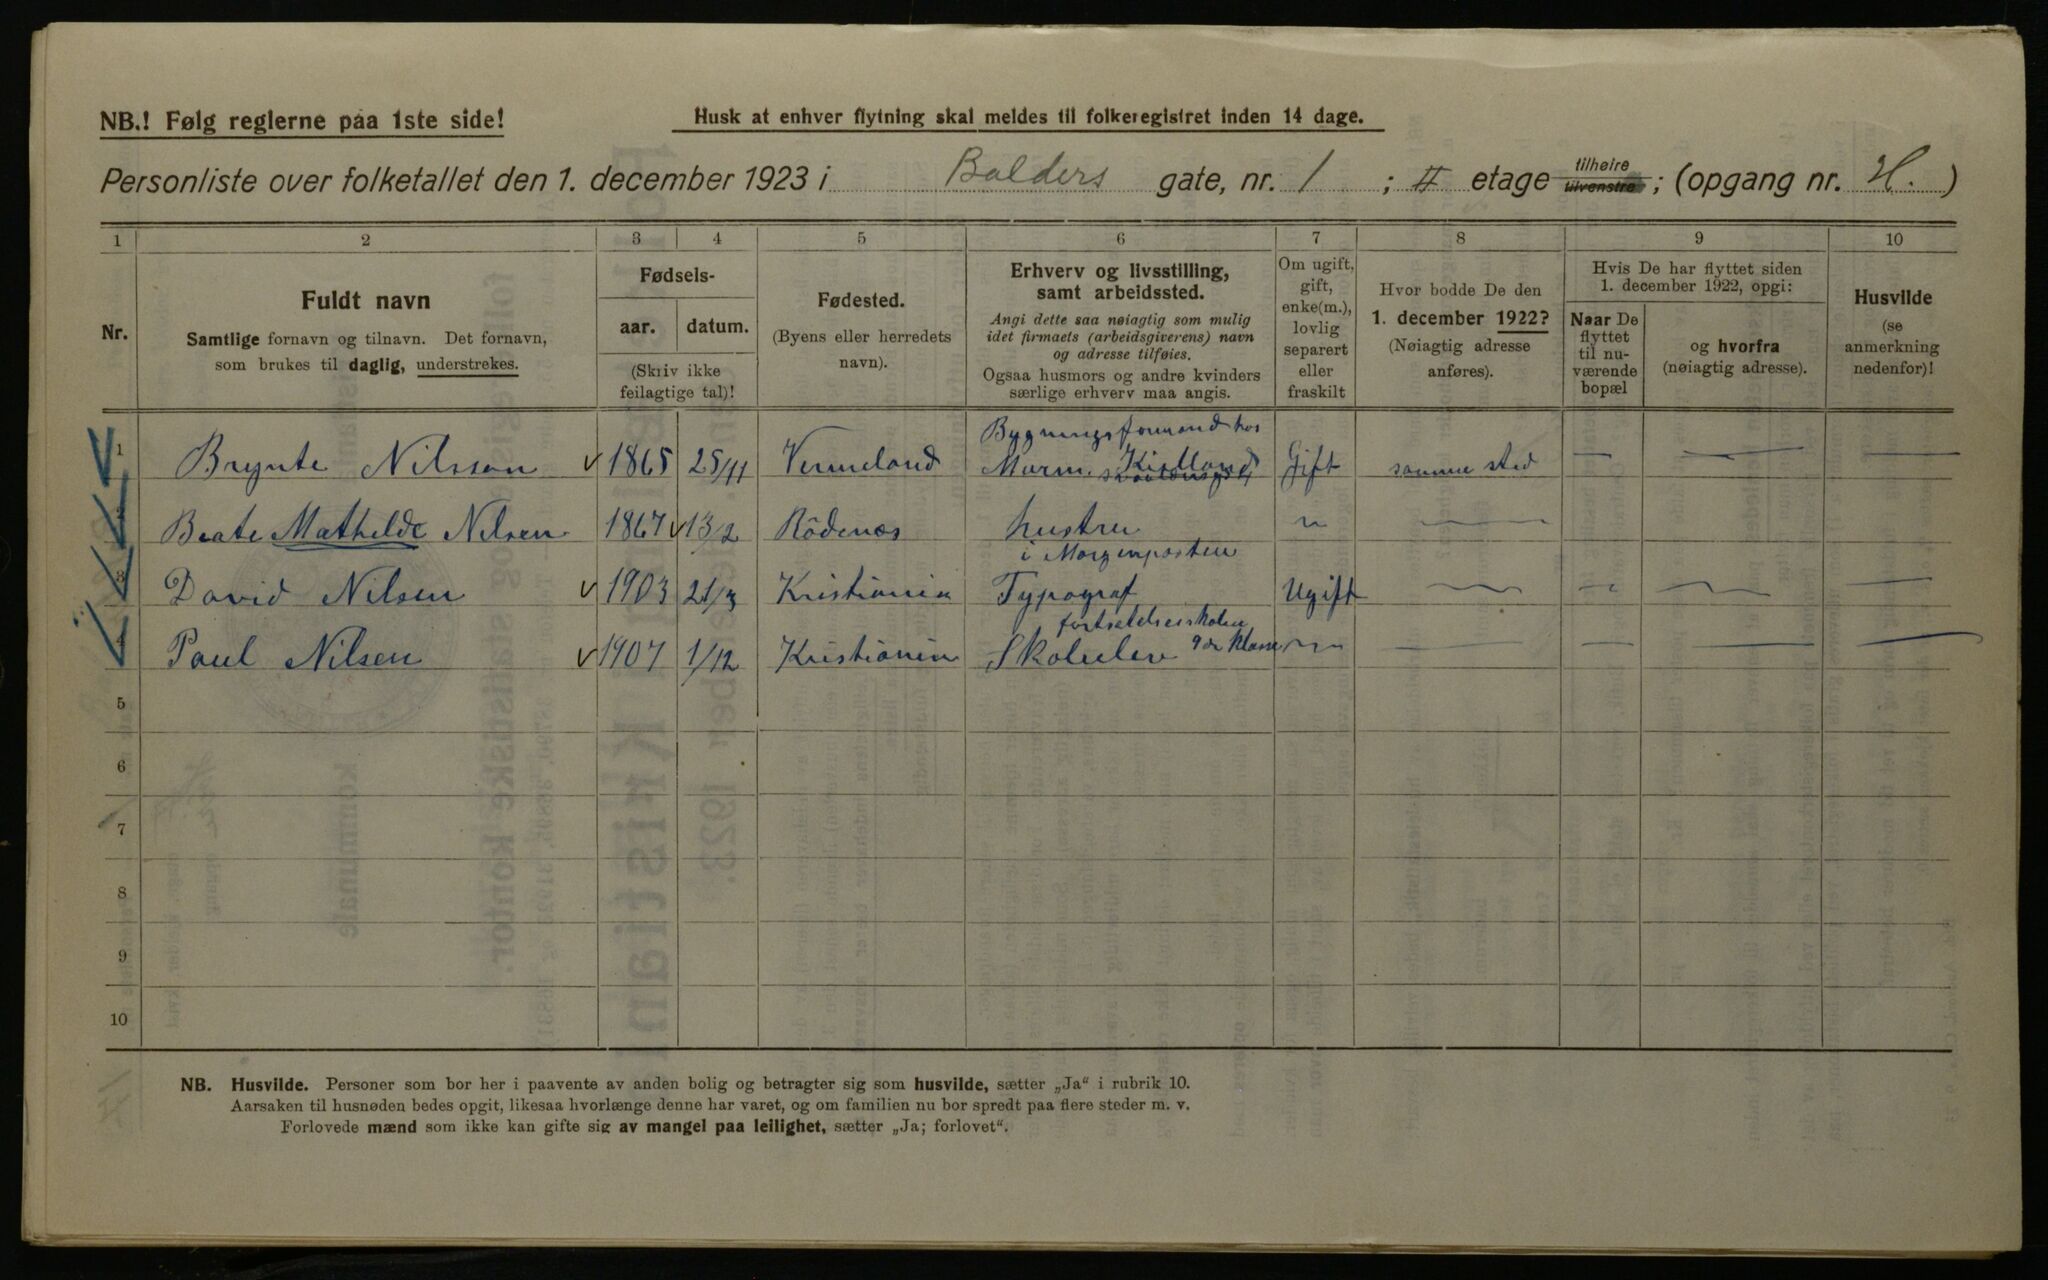 NB.! Følg reglerne paa 1ste side!
Husk at enhver flytning skal meldes til folkeregistret inden 14 dage.
Personliste over folketallet den 1. december 1923 i Balders gate, nr. 1 ; II etage tilhøire tilvenstre ; (opgang nr. H. )
1 2 3 4 5 6 7 8 9 10
Nr.
Fuldt navn
Samtlige fornavn og tilnavn. Det fornavn,
som brukes til daglig, understrekes.
Fødsels-
aar. datum.
(Skriv ikke
feilagtige tal)!
Fødested.
(Byens eller herredets
navn).
Erhverv og livsstilling,
samt arbeidssted.
Angi dette saa nøiagtig som mulig
idet firmaets (arbeidsgiverens) navn
og adresse tilføies.
Ogsaa husmors og andre kvinders
særlige erhverv maa angis.
Om ugift,
gift,
enke(m.),
lovlig
separert
eller
fraskilt
Hvor bodde De den
1. december 1922?
(Nøiagtig adresse
anføres).
Hvis De har flyttet siden
1. december 1922, opgi:
Naar De
flyttet
til nu-
værende
bopæl
og hvorfra
(nøiagtig adresse).
Husvilde
(se
anmerkning
nedenfor)!
Bygningsformand hos
1 Brynte Nilsson 1865 25/11 Vermeland Murm. Kirkland Gift samme sted — — —
2 Beate Mathilde Nilsen 1867 13/2 Rödenæs hustru " —
i Morgenposten
3 David Nilsen 1903 21/3 Kristiania Typograf Ugift — — — —
fortsetelsesskolen
4 Paul Nilsen 1907 1/12 Kristiania Skoleelev 9de Klasse " — — — —
5
6
7
8
9
10
NB. Husvilde. Personer som bor her i paavente av anden bolig og betragter sig som husvilde, sætter „Ja" i rubrik 10.
Aarsaken til husnøden bedes opgit, likesaa hvorlænge denne har varet, og om familien nu bor spredt paa flere steder m. v.
Forlovede mænd som ikke kan gifte sig av mangel paa leilighet, sætter „Ja; forlovet".